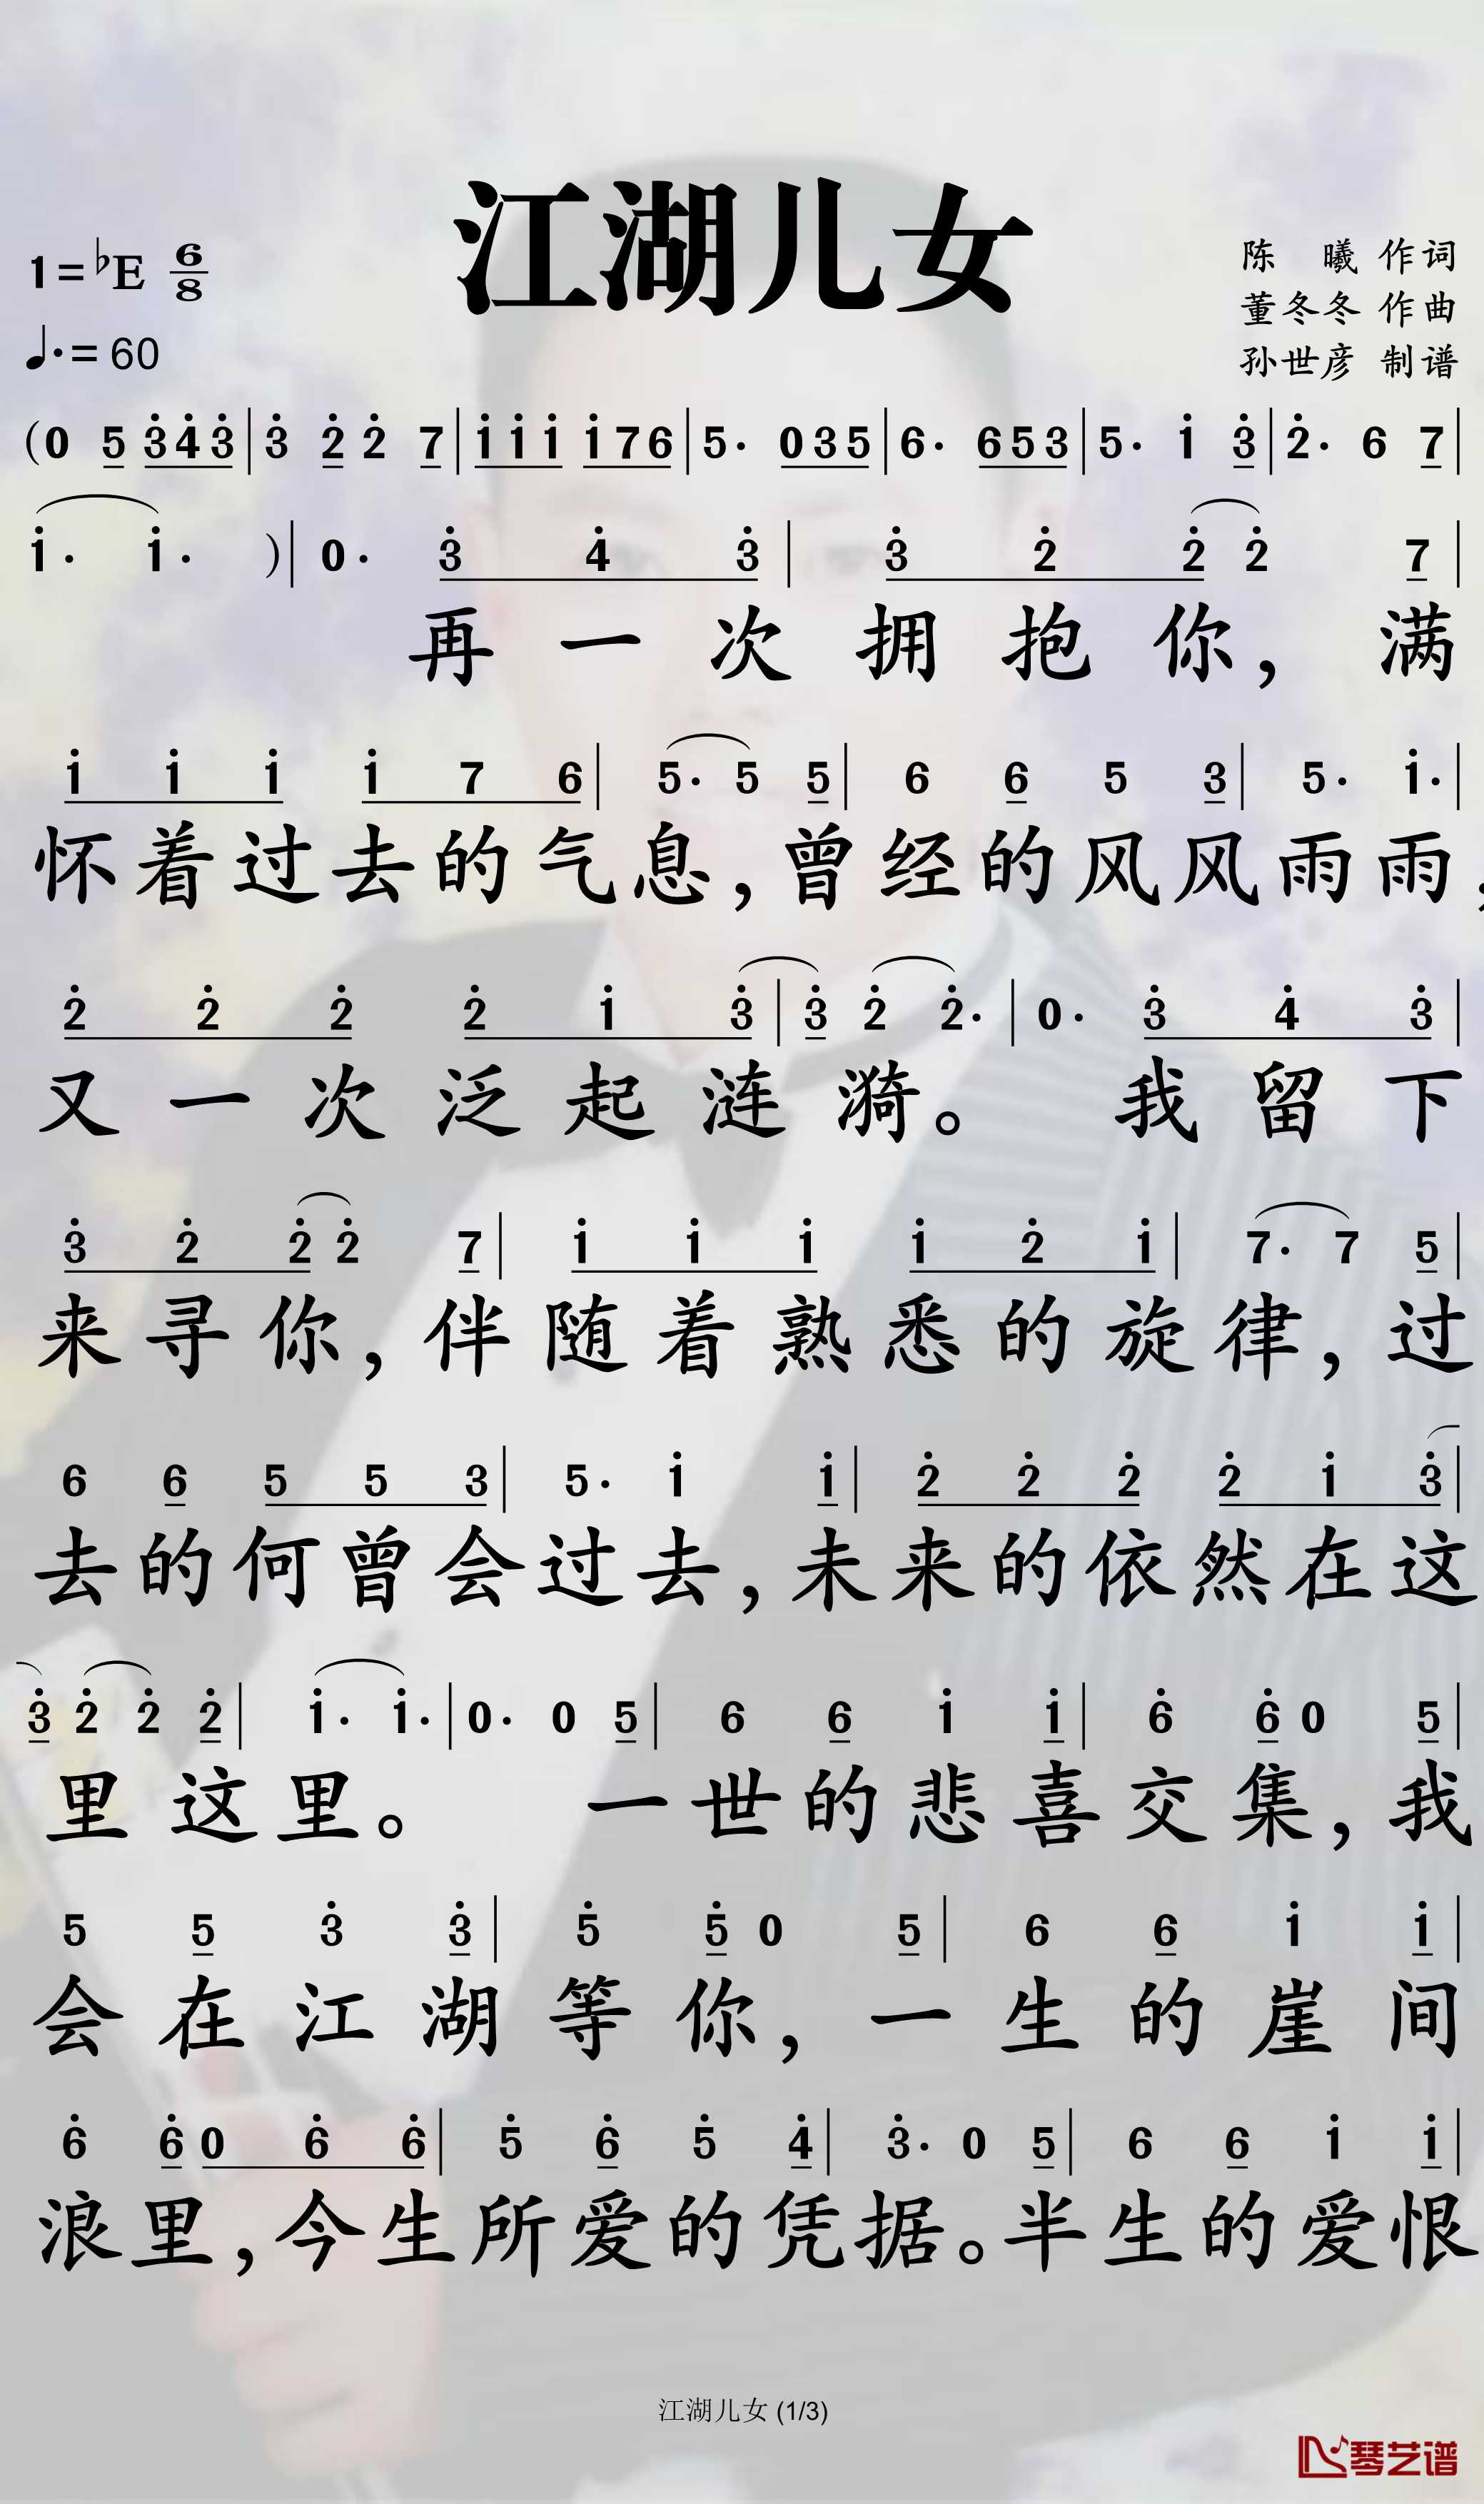 江湖儿女
1=♭E 6/8
♩.=60
陈 曦 作词
董冬冬 作曲
孙世彦 制谱
(0 5 3̇4̇3̇ | 3̇ 2̇ 2̇ 7 | i i i i 7 6 | 5· 0 3 5 | 6· 6 5 3 | 5· i 3̇ | 2̇· 6 7 |
i· i· ) | 0· 3̇ 4̇ 3̇ | 3̇ 2̇ 2̇ 2̇ 7 |
再一次拥抱你，满
i i i i 7 6 | 5· 5 5 | 6 6 5 3 | 5· i· |
怀着过去的气息，曾经的风风雨雨，
2̇ 2̇ 2̇ 2̇ i 3̇ | 3̇ 2̇ 2̇· | 0· 3̇ 4̇ 3̇ |
又一次泛起涟漪。 我留下
3̇ 2̇ 2̇ 2̇ 7 | i i i i 2̇ i | 7· 7 5 |
来寻你，伴随着熟悉的旋律，过
6 6 5 5 3 | 5· i i | 2̇ 2̇ 2̇ 2̇ i 3̇ |
去的何曾会过去，未来的依然在这
3̇ 2̇ 2̇ 2̇ | i· i· | 0· 0 5 | 6 6 i i | 6̇ 6̇ 0 5̇ |
里这里。 一世的悲喜交集，我
5 5 3̇ 3̇ | 5̇ 5̇ 0 5 | 6 6 i i |
会在江湖等你，一生的崖间
6̇ 6̇ 0 6̇ 6̇ | 5̇ 6̇ 5̇ 4̇ | 3̇· 0 5 | 6 6 i i |
浪里，今生所爱的凭据。半生的爱恨
江湖儿女 (1/3)
琴艺谱